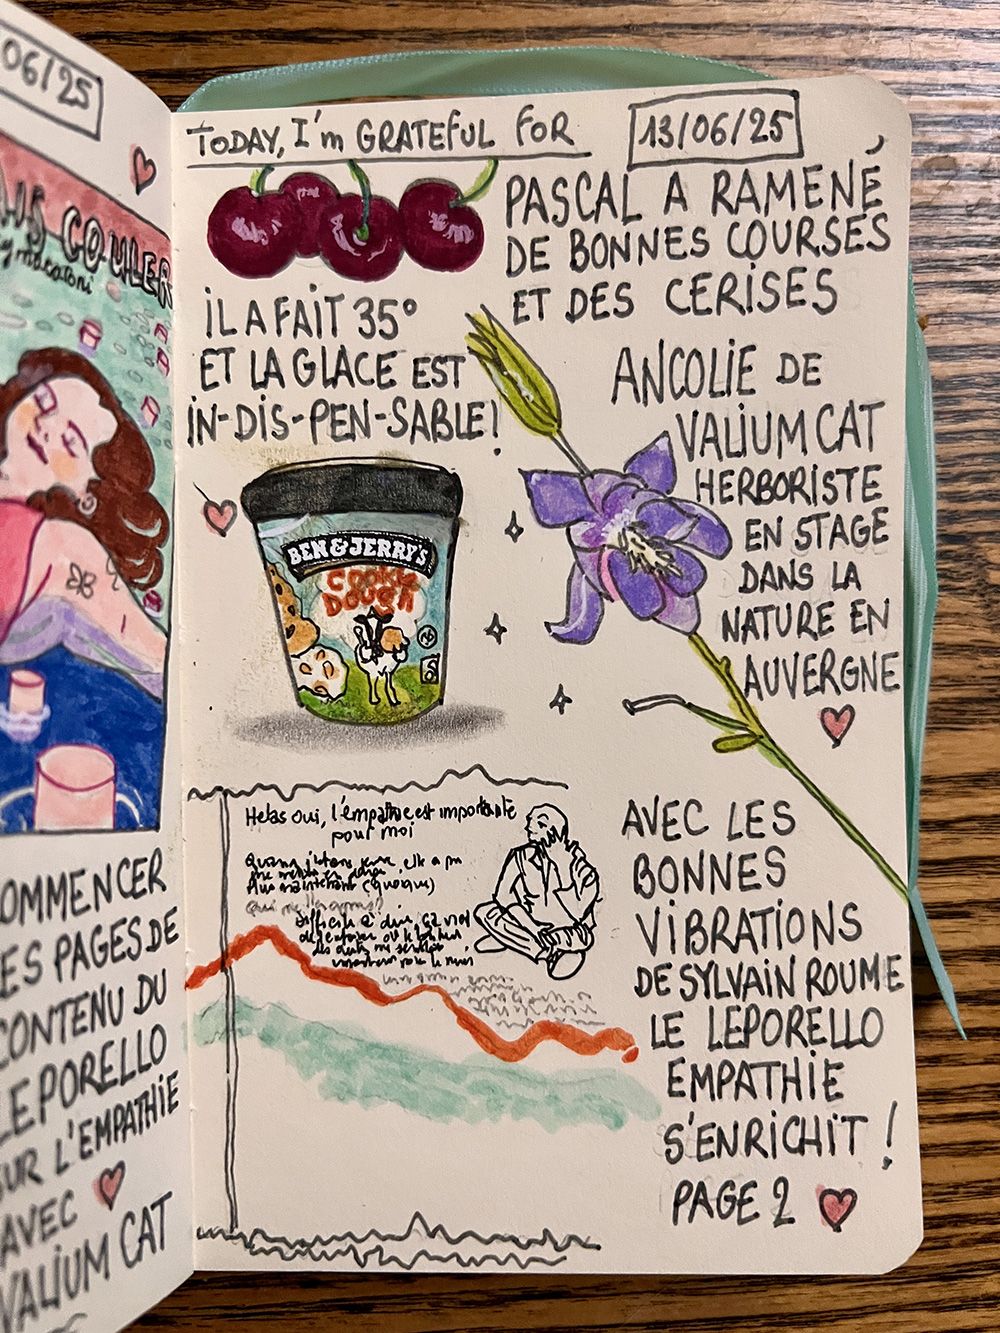 06/25
AIS COULER
OMMENCER
ES PAGES DE
CONTENU DU
LEPORELLO
SUR L'EMPATHIE
AVEC
VALIUM CAT
TODAY, I'm GRATEFUL FOR
13/06/25
PASCAL A RAMENÉ
DE BONNES COURSES
ET DES CERISES
IL A FAIT 35°
ET LA GLACE EST
IN-DIS-PEN-SABLE!
BEN & JERRY'S
COOKIE
DOUGH
ANCOLIE DE
VALIUM CAT
HERBORISTE
EN STAGE
DANS LA
NATURE EN
AUVERGNE
Helas oui, l'empathie est importante
pour moi
AVEC LES
BONNES
VIBRATIONS
DE SYLVAIN ROUME
LE LEPORELLO
EMPATHIE
S'ENRICHIT !
PAGE 2